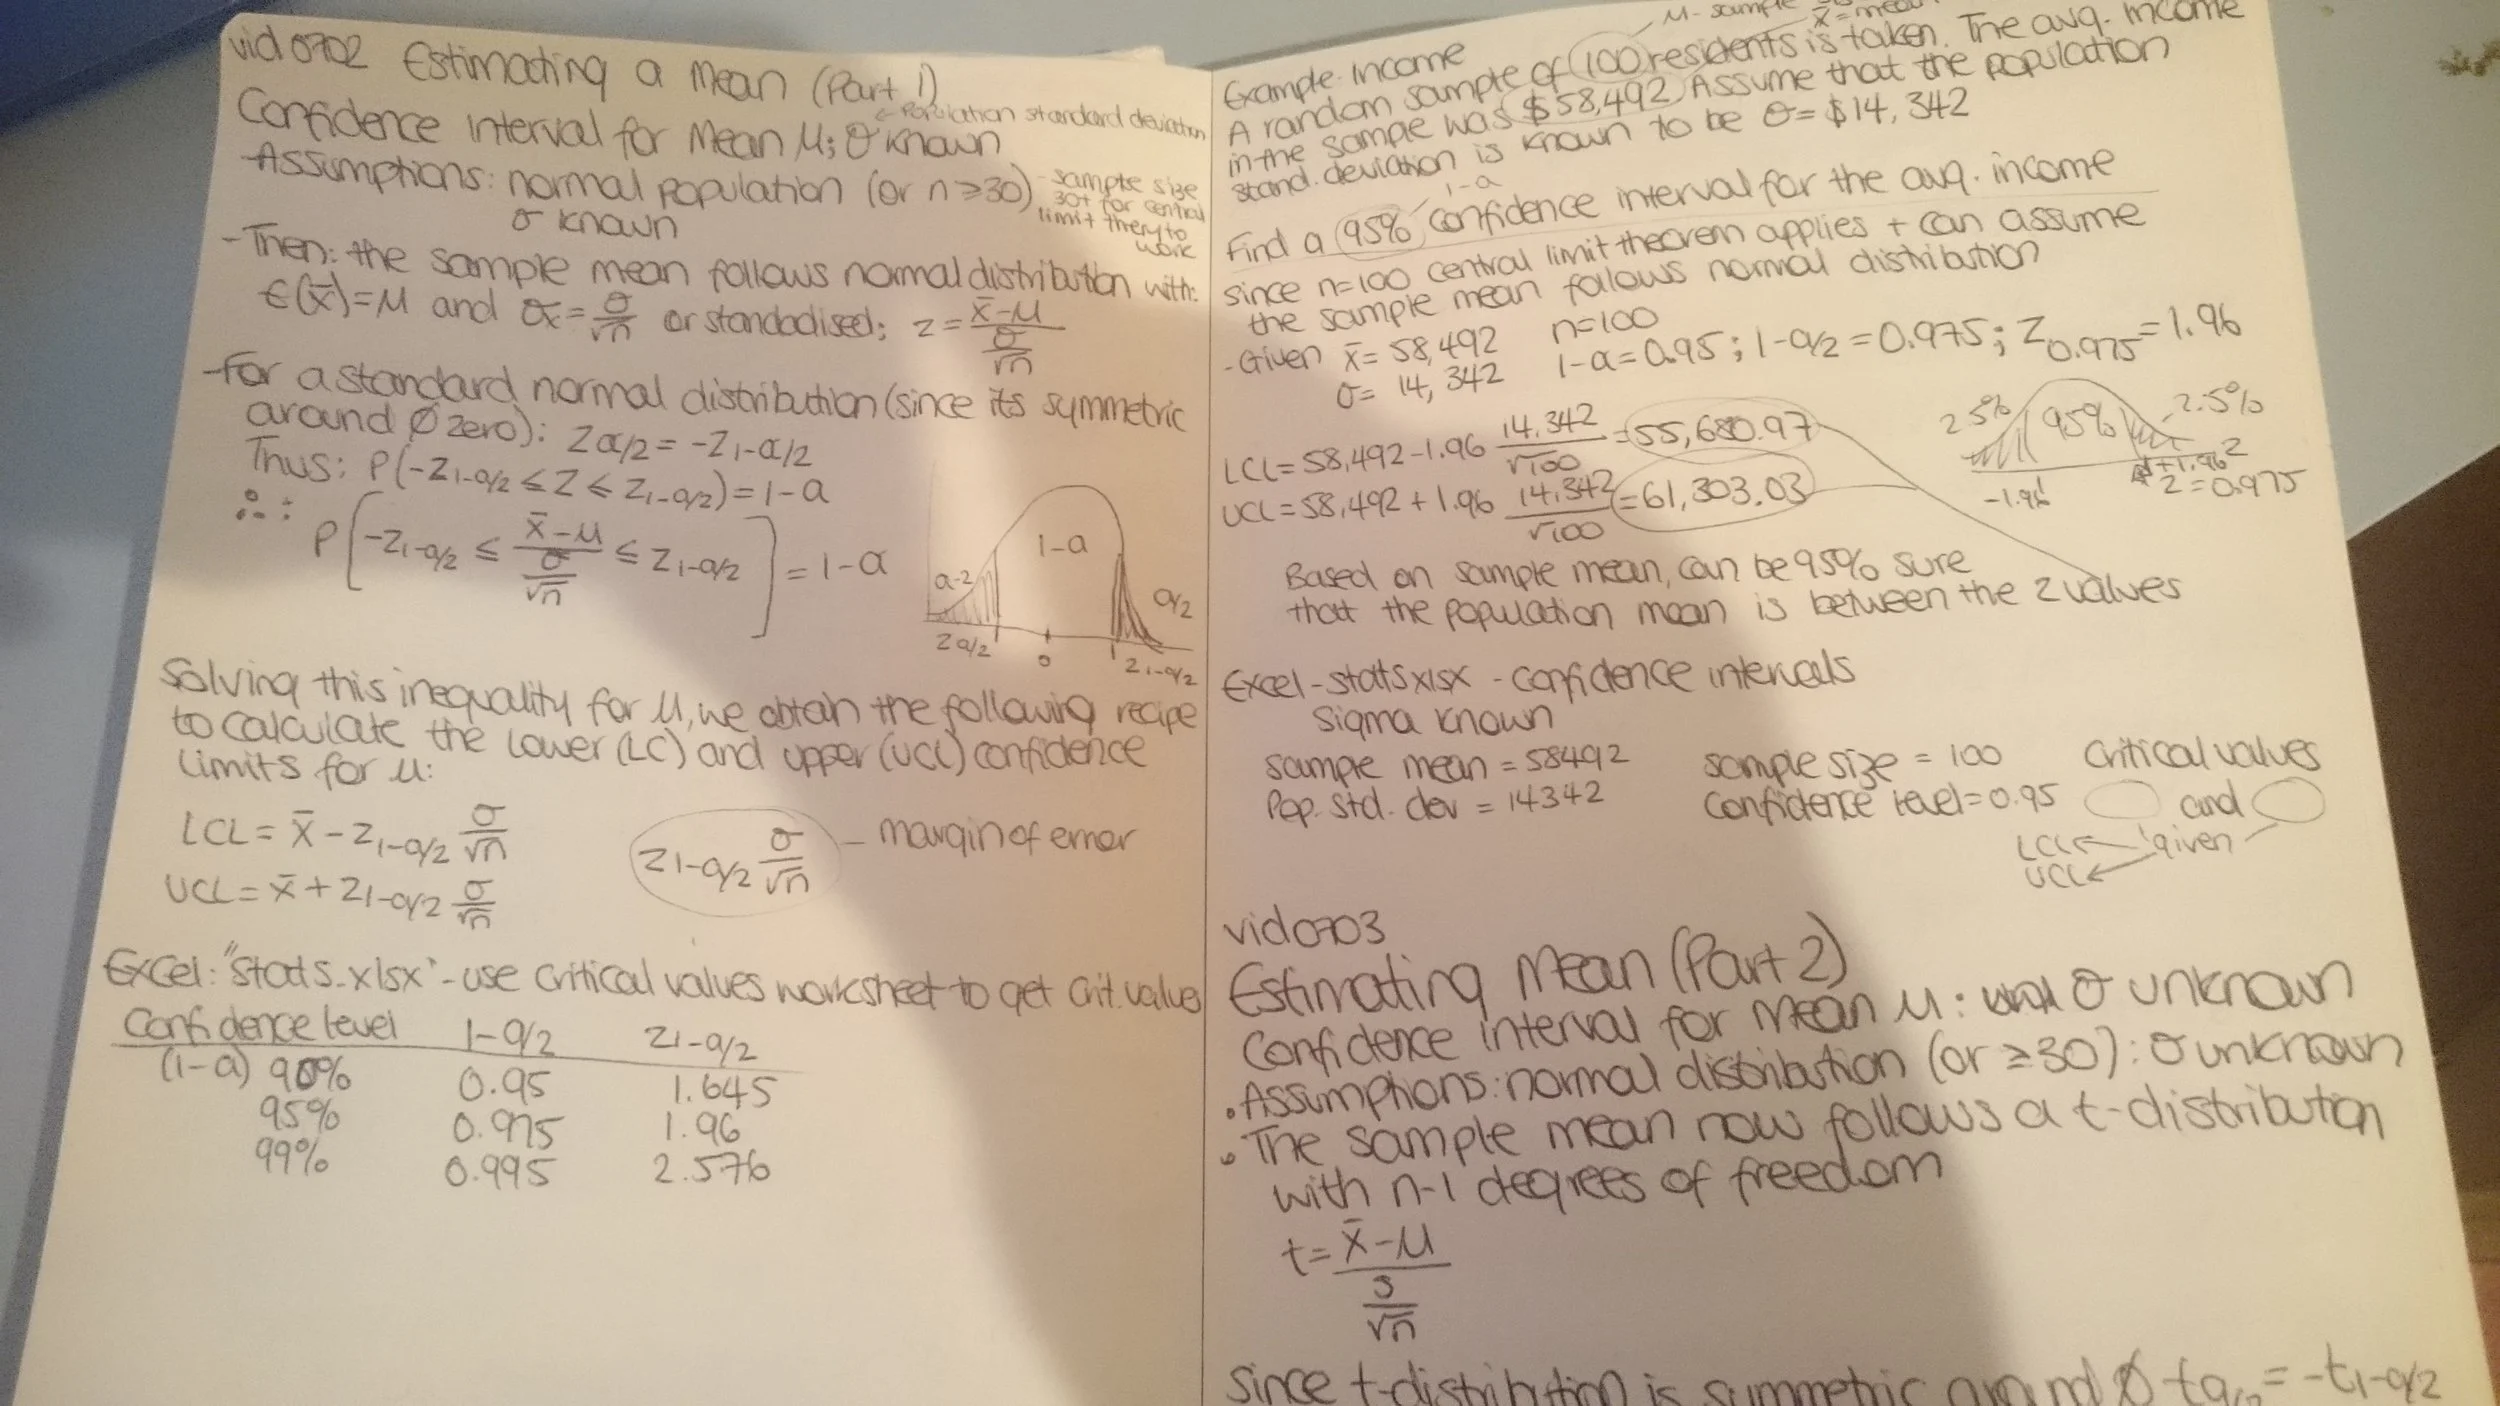 vid 0702 Estimating a Mean (Part 1)
← Population standard deviation
Confidence interval for Mean μ; σ known
-Assumptions: normal population (or n ≥ 30)
σ known
- sample size
30+ for central
limit thery to
work
-Then: the sample mean follows normal distribution with:
E(x̄)=μ and σx̄=σ/√n or standadised; z=(x̄-μ)/(σ/√n)
-For a standard normal distribution (since its symmetric
around Ø zero): Zα/2 = -Z1-α/2
Thus: P(-Z1-α/2 ≤ Z ≤ Z1-α/2) = 1-α
∴:
P[-Z1-α/2 ≤ (x̄-μ)/(σ/√n) ≤ Z1-α/2] = 1-α
α-2
1-α
α/2
Zα/2
0
Z1-α/2
Solving this inequality for μ, we obtain the following recipe
to calculate the Lower (LC) and upper (UCL) confidence
limits for μ:
LCL = x̄ - Z1-α/2 σ/√n
UCL = x̄ + Z1-α/2 σ/√n
Z1-α/2 σ/√n - margin of error
Excel: "stats.xlsx" - use critical values worksheet to get crit. value
Confidence level 1-α/2 Z1-α/2
(1-α) 90% 0.95 1.645
95% 0.975 1.96
99% 0.995 2.576
μ- sample
x̄ = mean
Example: Income
A random sample of 100 residents is taken. The avg. income
in the sample was $58,492 Assume that the population
stand. deviation is known to be σ = $14,342
1-α
Find a 95% confidence interval for the avg. income
since n=100 central limit theorem applies + can assume
the sample mean follows normal distribution
-Given x̄= 58,492 n=100
σ= 14,342 1-α=0.95; 1-α/2 = 0.975; Z0.975 = 1.96
LCL = 58,492 - 1.96 14,342/√100 = 55,680.97
UCL = 58,492 + 1.96 14,342/√100 = 61,303.03
2.5%
95%
2.5%
-1.96
+1.96
Z = 0.975
Based on sample mean, can be 95% sure
that the population mean is between the 2 values
Excel - stats xlsx - confidence intervals
Sigma known
sample mean = 58492 sample size = 100 Critical values
Pop. std. dev = 14342 Confidence level = 0.95 and
LCL given
UCL
vid 0703
Estimating Mean (Part 2)
Confidence interval for Mean μ: σ unknown
• Assumptions: normal distribution (or ≥30): σ unknown
• The sample mean now follows a t-distribution
with n-1 degrees of freedom
t = (x̄-μ)/(s/√n)
since t-distribution is symmetric around Ø tα/2 = -t1-α/2